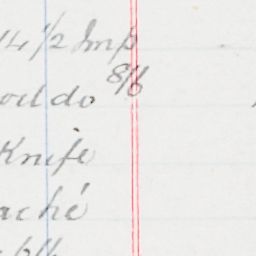 14 1/2 Imp
oil do 8/6
Knife
aché
6/6